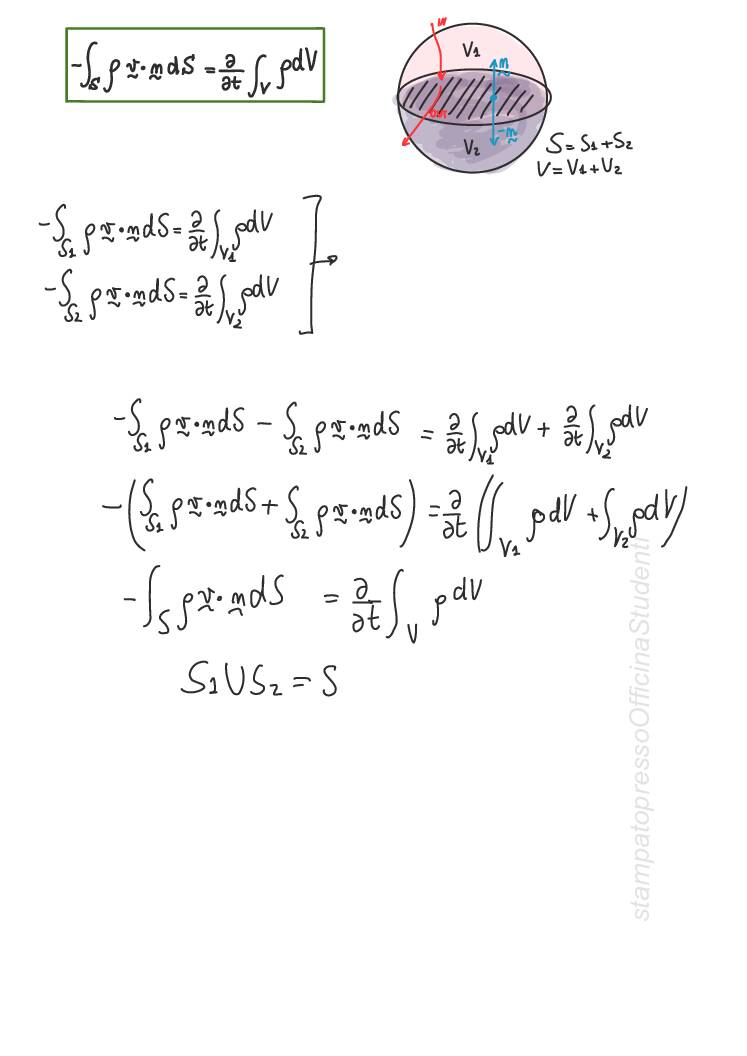 -∫_S ρ v·n dS = ∂/∂t ∫_V ρ dV
in
V1
n
out
-n
V2
S = S1+S2
V = V1+V2
-∫_S1 ρ v·n dS = ∂/∂t ∫_V1 ρ dV
-∫_S2 ρ v·n dS = ∂/∂t ∫_V2 ρ dV
-∫_S1 ρ v·n dS - ∫_S2 ρ v·n dS = ∂/∂t ∫_V1 ρ dV + ∂/∂t ∫_V2 ρ dV
-(∫_S1 ρ v·n dS + ∫_S2 ρ v·n dS) = ∂/∂t (∫_V1 ρ dV + ∫_V2 ρ dV)
-∫_S ρ v·n dS = ∂/∂t ∫_V ρ dV
S1 U S2 = S
stampatopressoOfficinaStudenti